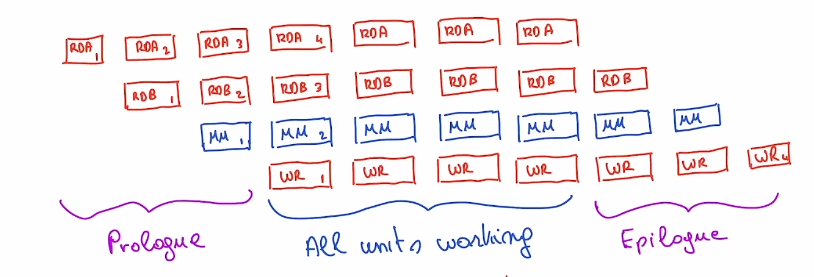 RDA 1 RDA 2 RDA 3 RDA 4 RDA RDA RDA
RDB 1 RDB 2 RDB 3 RDB RDB RDB RDB
MM 1 MM 2 MM MM MM MM MM
WR 1 WR WR WR WR WR WR
Prologue All units working Epilogue